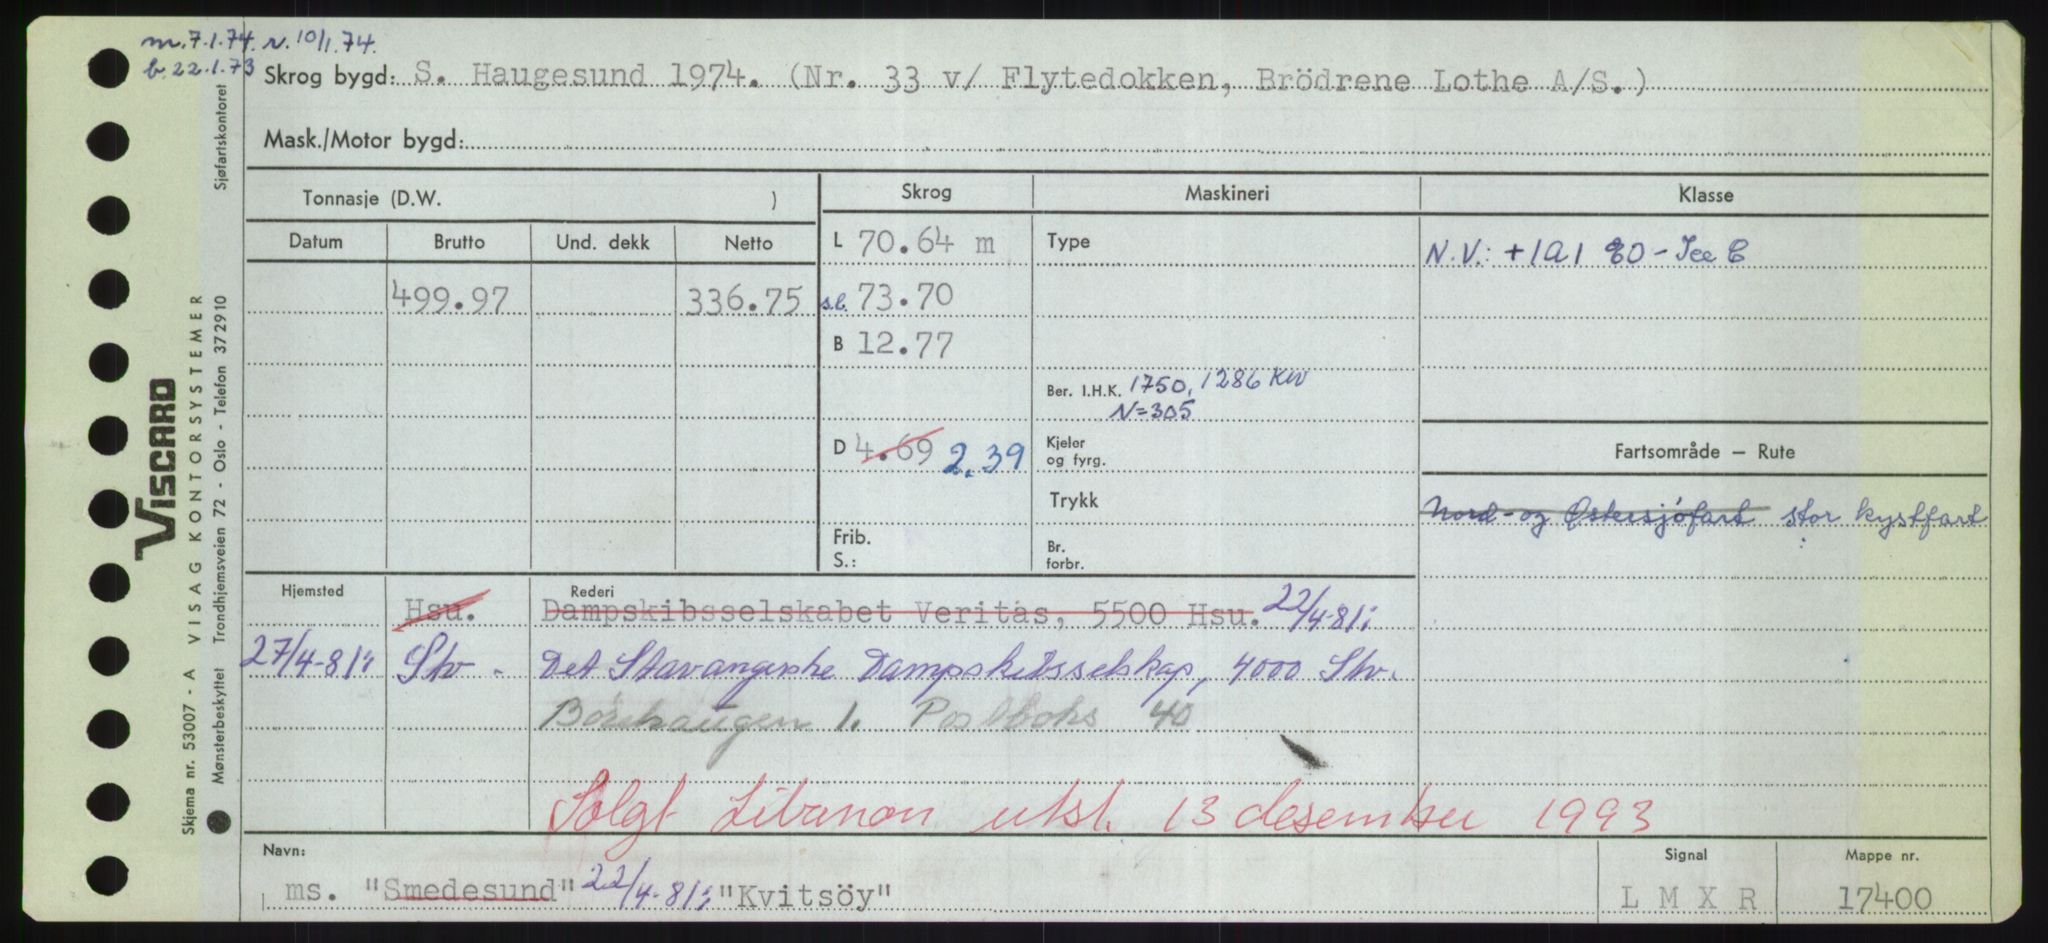 m. 7.1.74. n. 10/1.74.
b. 22.1.73
Skrog bygd: S. Haugesund 1974. (Nr. 33 v/ Flytedokken, Brödrene Lothe A/S.)
Mask./Motor bygd:
Tonnasje (D.W. )
Skrog
Maskineri
Klasse
Datum Brutto Und. dekk Netto
L 70.64 m
Type
N.V.: +1A1 EO - Ice C
499.97 336.75
s.l. 73.70
B 12.77
Ber. I.H.K. 1750, 1286 KW
N=305
D 4.69 2,39
Kjeler
og fyrg.
Fartsområde – Rute
Trykk
Nord- og Østersjöfart stor kystfart
Frib.
S.:
Br.
forbr.
Hjemsted Hsu. Rederi
Dampskibsselskabet Veritas, 5500 Hsu. 22/4-81:
27/4-81: Stv - Det Stavangerske Dampskibsselskap, 4000 Stv.
Börehaugen 1. Postboks 40
Solgt Libanon utst. 13 desember 1993
Navn:
ms. "Smedesund" 22/4-81: "Kvitsöy"
Signal
L M X R
Mappe nr.
17400
Sjøfartskontoret
VISCARD
VISAG KONTORSYSTEMER
Skjema nr. 53007 - A
Mønsterbeskyttet Trondhjemsveien 72 - Oslo - Telefon 372910